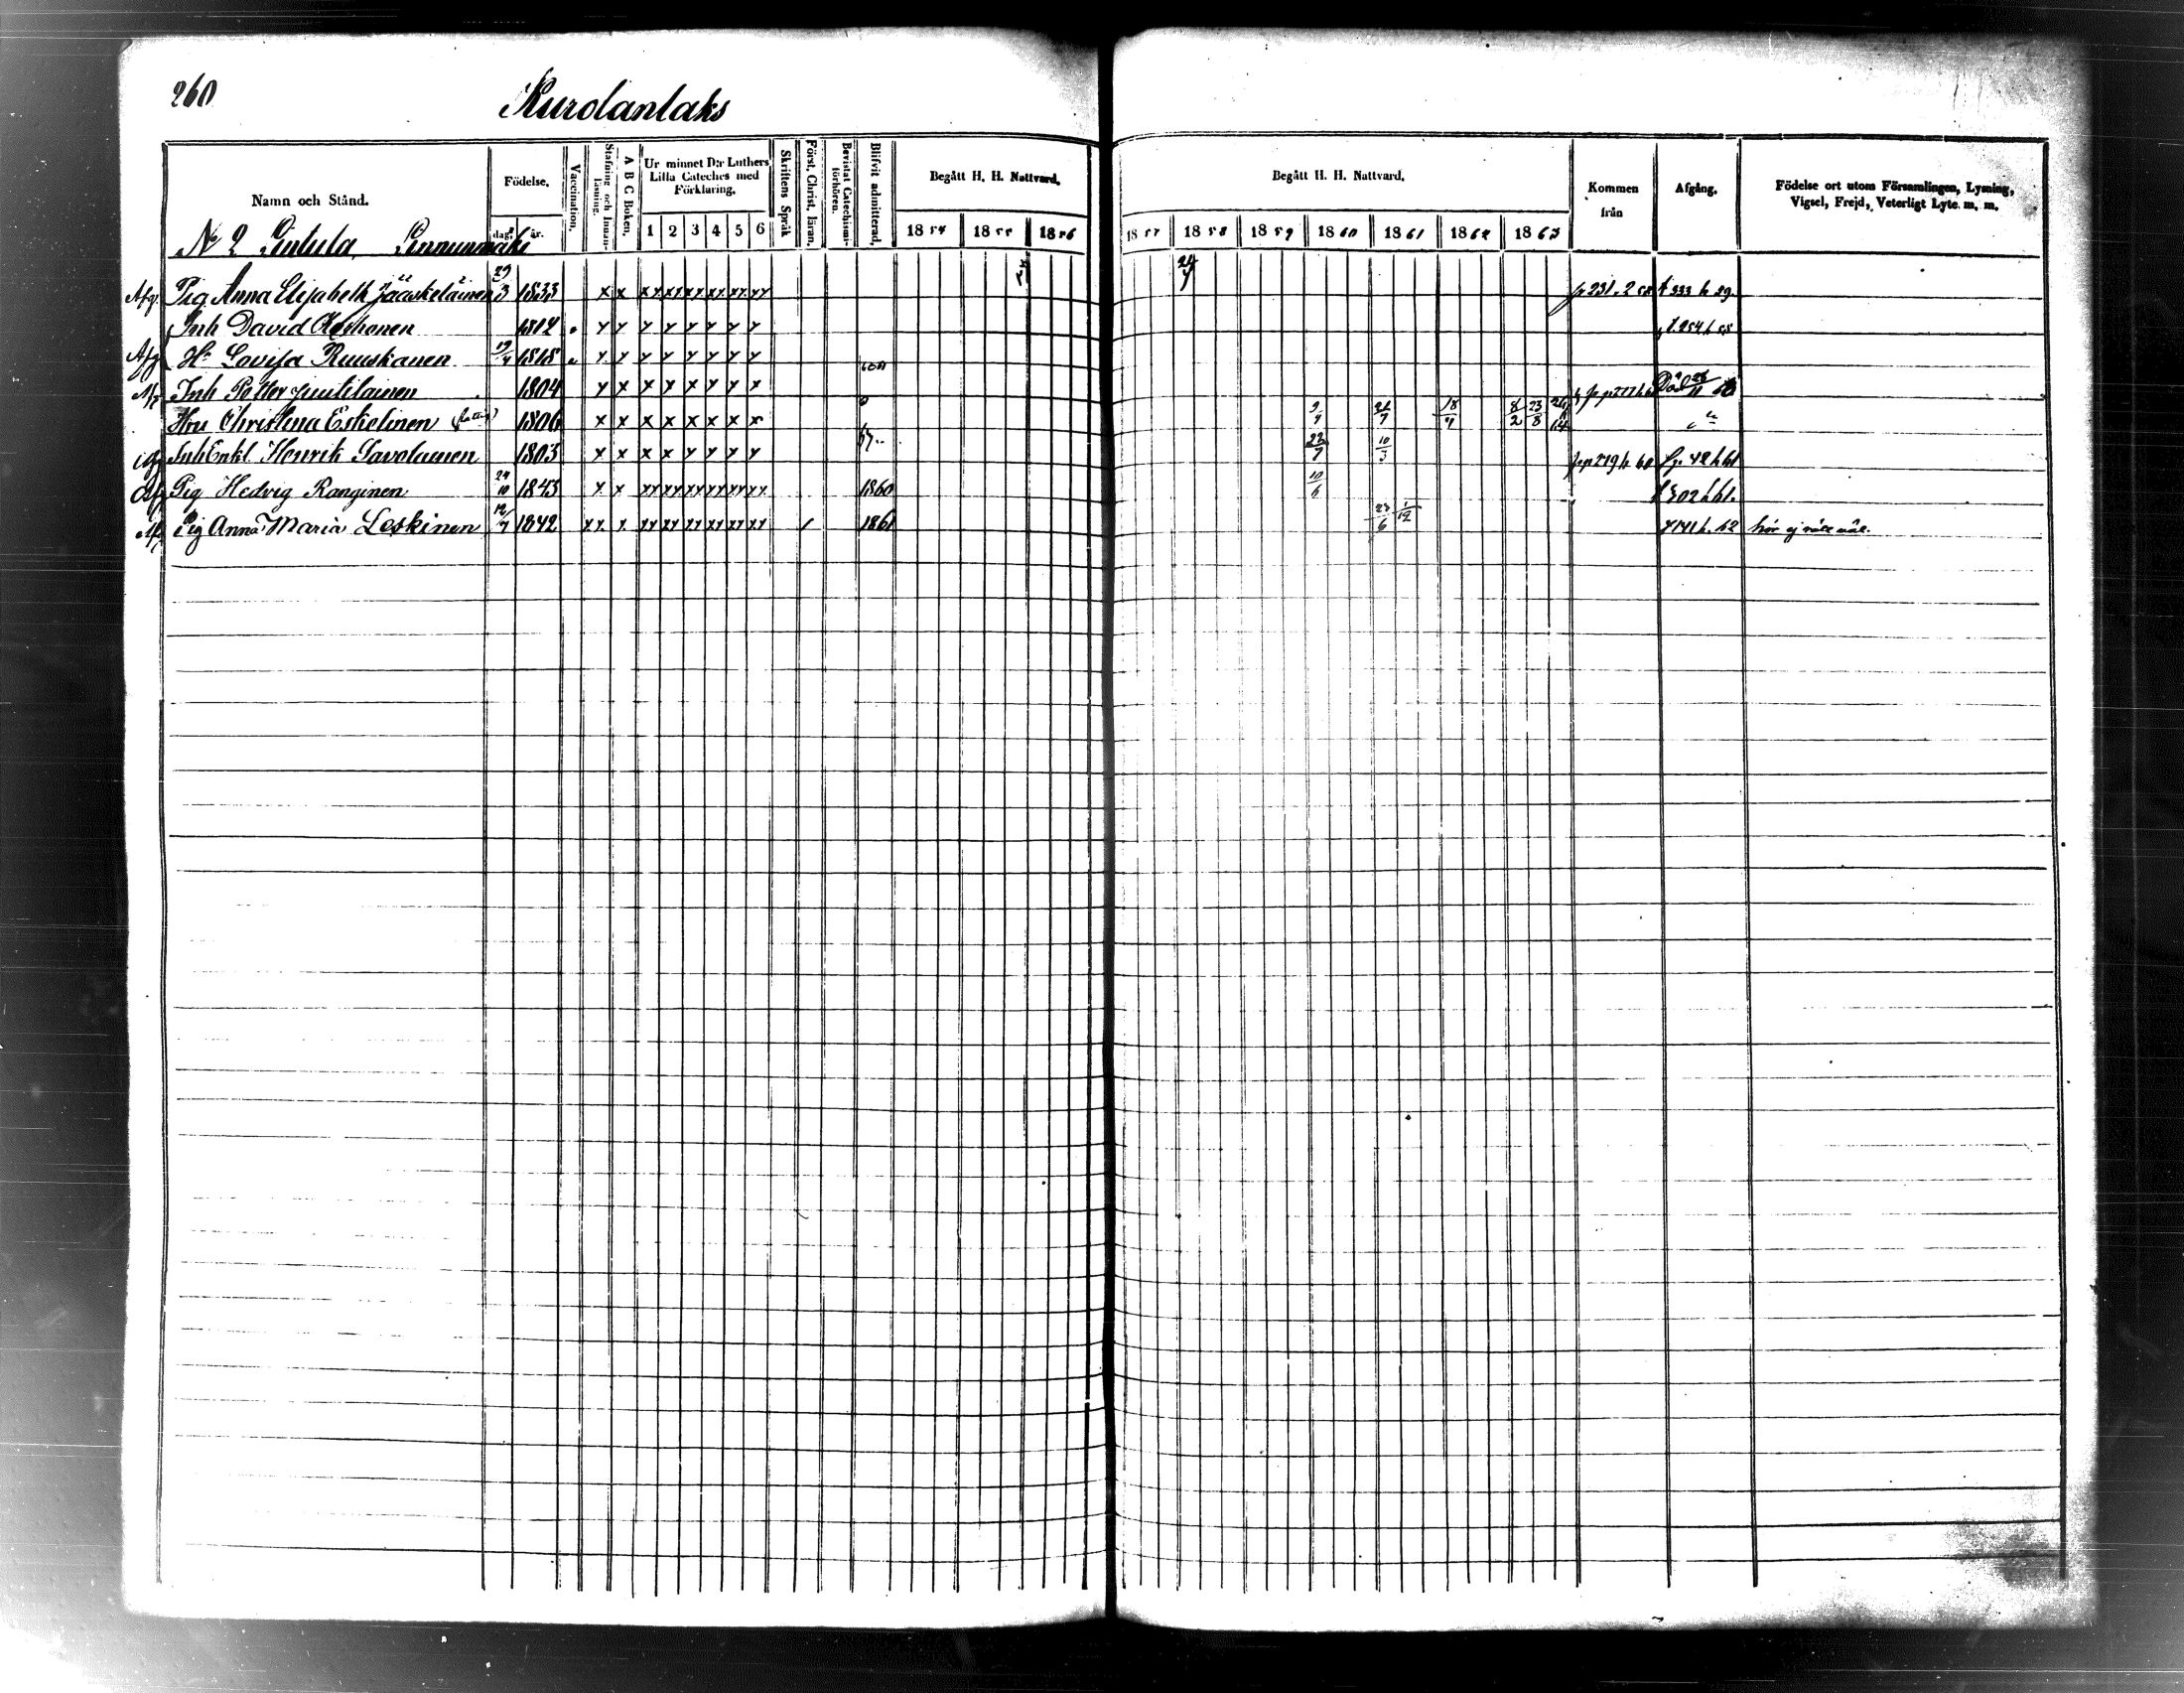 260 Kurolanlaks
Namn och Stånd. Födelse. dag. år. Vaccination. Stafning och Innanläsning. A B C Boken. Ur minnet D:r Luthers Lilla Cateches med Förklaring. 1 2 3 4 5 6 Skriftens Språk Först. Christ. läran. Bevistat Catechismi-förhören. Blifvit admitterad. Begått H. H. Nattvard. 1854 1855 1856
Begått H. H. Nattvard. 1857 1858 1859 1860 1861 1862 1863 Kommen från Afgång. Födelse ort utom Församlingen, Lysning, Vigsel, Frejd, Veterligt Lyte m. m.
N 2 Linnunmäki
Afg. Pig Anna Elisabeth Jääskeläinen 29/3 1833 x x xx xx xx xx xx xx 24/7 p 231. 258 f 333 h 59.
Inh David 1812 x x x x x x x x f. 254 h 58
Afg H:u Lovisa Ruuskanen 19/4 1818 x x x x x x x x
Inh Petter Juutilainen 1804 x x x x x x x x Död 26/11 60
Hru Christina Eskelinen 1806 x x x x x x x x 9/9 21/7 18/4 8/2 23/8
Inh Enkl Henrik Savolainen 1803 x x x x x x x x 22/7 10/3 p 219 h 60 f p. 42 h 61
Afg Pig Hedvig Ranginen 24/10 1843 x x xx xx xx xx xx xx 1860 10/6 f 302 h 61.
Afg Pig Anna Maria Leskinen 12/7 1842 xx x xx xx xx xx xx xx 1 1861 23/6 1/12 f 141 h. 62 hör ej rätt väl.